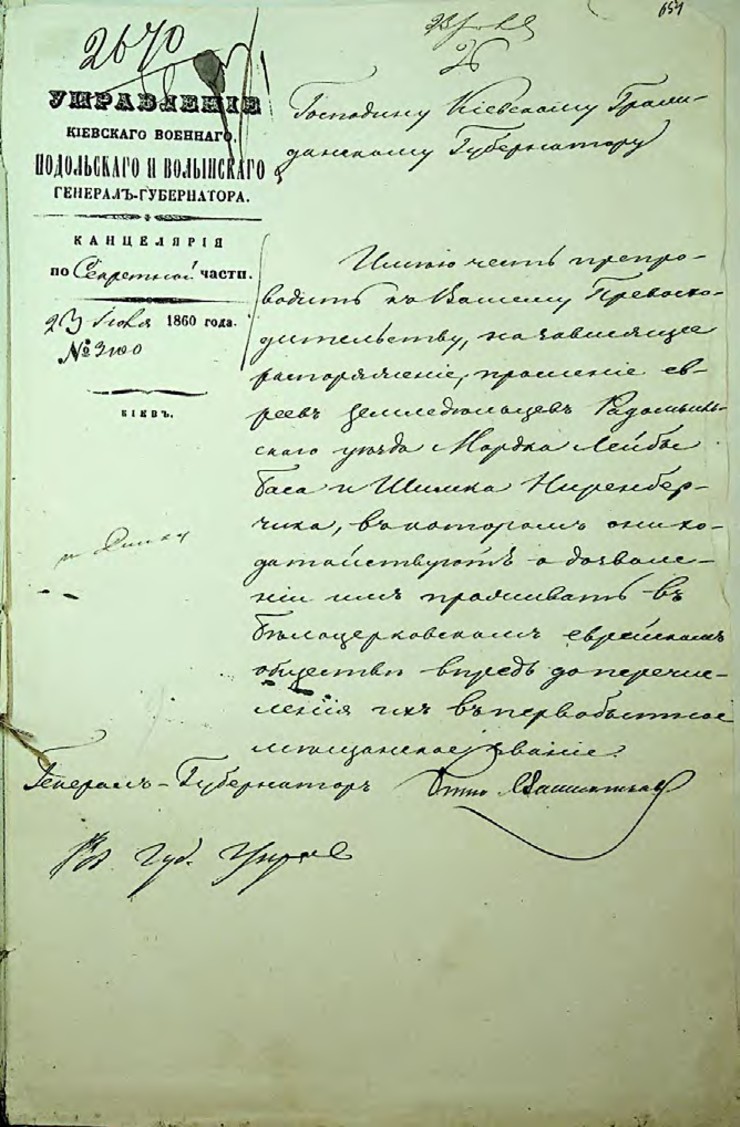 2670
651
26
УПРАВЛЕНІЕ
КІЕВСКАГО ВОЕННАГО,
ПОДОЛЬСКАГО И ВОЛЫНСКАГО
ГЕНЕРАЛЪ-ГУБЕРНАТОРА.
КАНЦЕЛЯРІЯ
по Секретной части.
23 Іюля 1860 года.
№ 3100
КІЕВЪ.
Господину Кіевскому Граж-
данскому Губернатору
Имѣю честь препро-
водить къ Вашему Превосхо-
дительству, на зависящее
распоряженіе, прошеніе ев-
реевъ земледѣльцевъ Радомысль-
скаго уѣзда Мордка Лейбы
Баса и Шимка Ниренбер-
чика, въ которомъ они хо-
датайствуютъ о дозволе-
ніи имъ проживать въ
Бѣлоцерковскомъ еврейскомъ
обществѣ впредь до перечис-
ленія ихъ въ первобытное
мѣщанское званіе.
Генералъ-Губернаторъ
Губ.